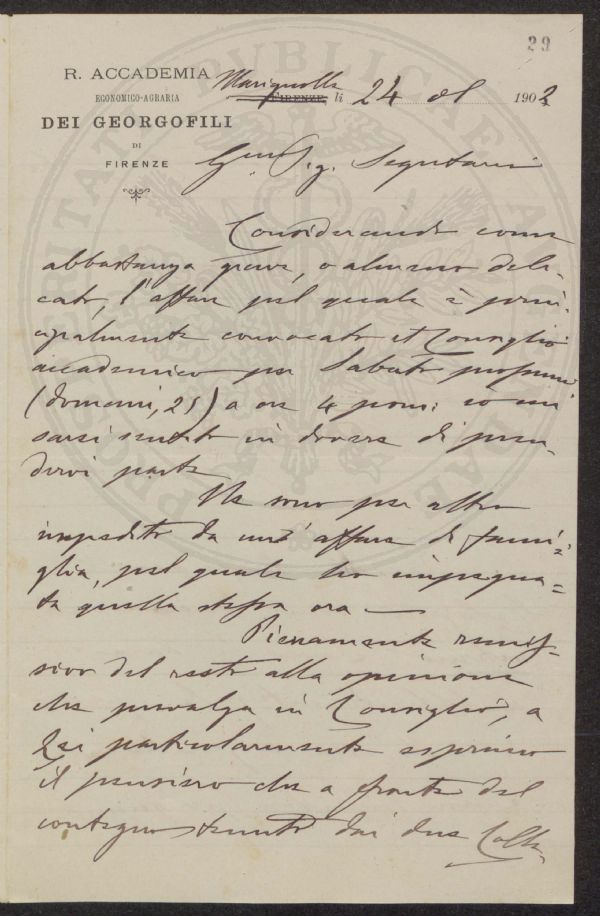 39
R. ACCADEMIA
ECONOMICO-AGRARIA
DEI GEORGOFILI
DI
FIRENZE
Marignolle
FIRENZE li 24 1902
Sig. Segretario
Considerando come
abbastanza grave, o almeno deli-
cato, l'affare pel quale è princi-
palmente convocato il Consiglio
accademico per Sabato prossimo
(domani, 25) a ore 4 pom: io mi
sarei sentito in dovere di pren-
dervi parte
Ne sono per altro
impedito da un'affare di fami=
glia, pel quale ho impegna=
ta quella stessa ora —
Pienamente remis-
sivo del resto alla opinione
che prevalga in Consiglio, a
Lei particolarmente esprimo
il pensiero che a fronte del
contegno tenuto dai due Colle-